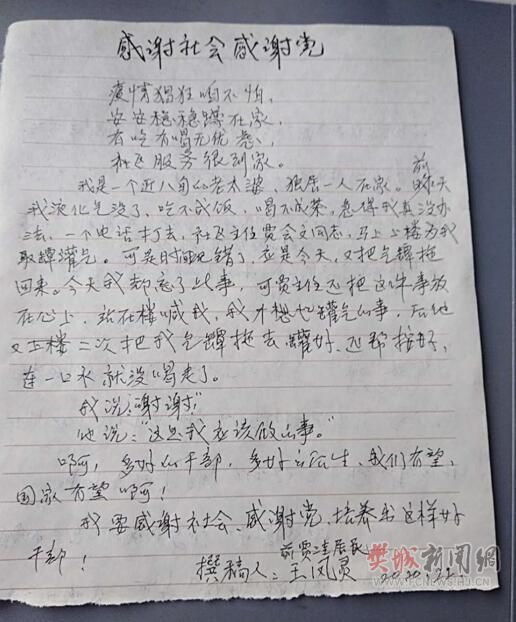 感谢社会感谢党
疫情猖狂咱不怕,
安安稳稳蹲在家,
有吃有喝无忧愁,
社区服务很到家。
我是一个近八旬的老太婆,独居一人在家。前昨天
我液化气没了、吃不成饭,喝不成茶,急得我真没办
法,一个电话打去,社区主任贾会文同志,马上上楼为我
取罐灌气。可是时间错了,应是今天,又把气罐拖
回来。今天我却忘了此事,可贾主任不把这件事放
在心上,站在楼喊我,我才想也罐气的事,后他
又上楼二次把我气罐拖去罐好、还帮接好,
连一口水就没喝走了。
我说:"谢谢!"
他说:"这是我应该做的事。"
啊!多好的干部,多好的医生、我们有望,
国家有望啊!
我要感谢社会、感谢党、培养出这样好
干部!
前贾洼居民
撰稿人:王凤灵
樊城新闻网
WWW.FCNEWS.HJ.CN